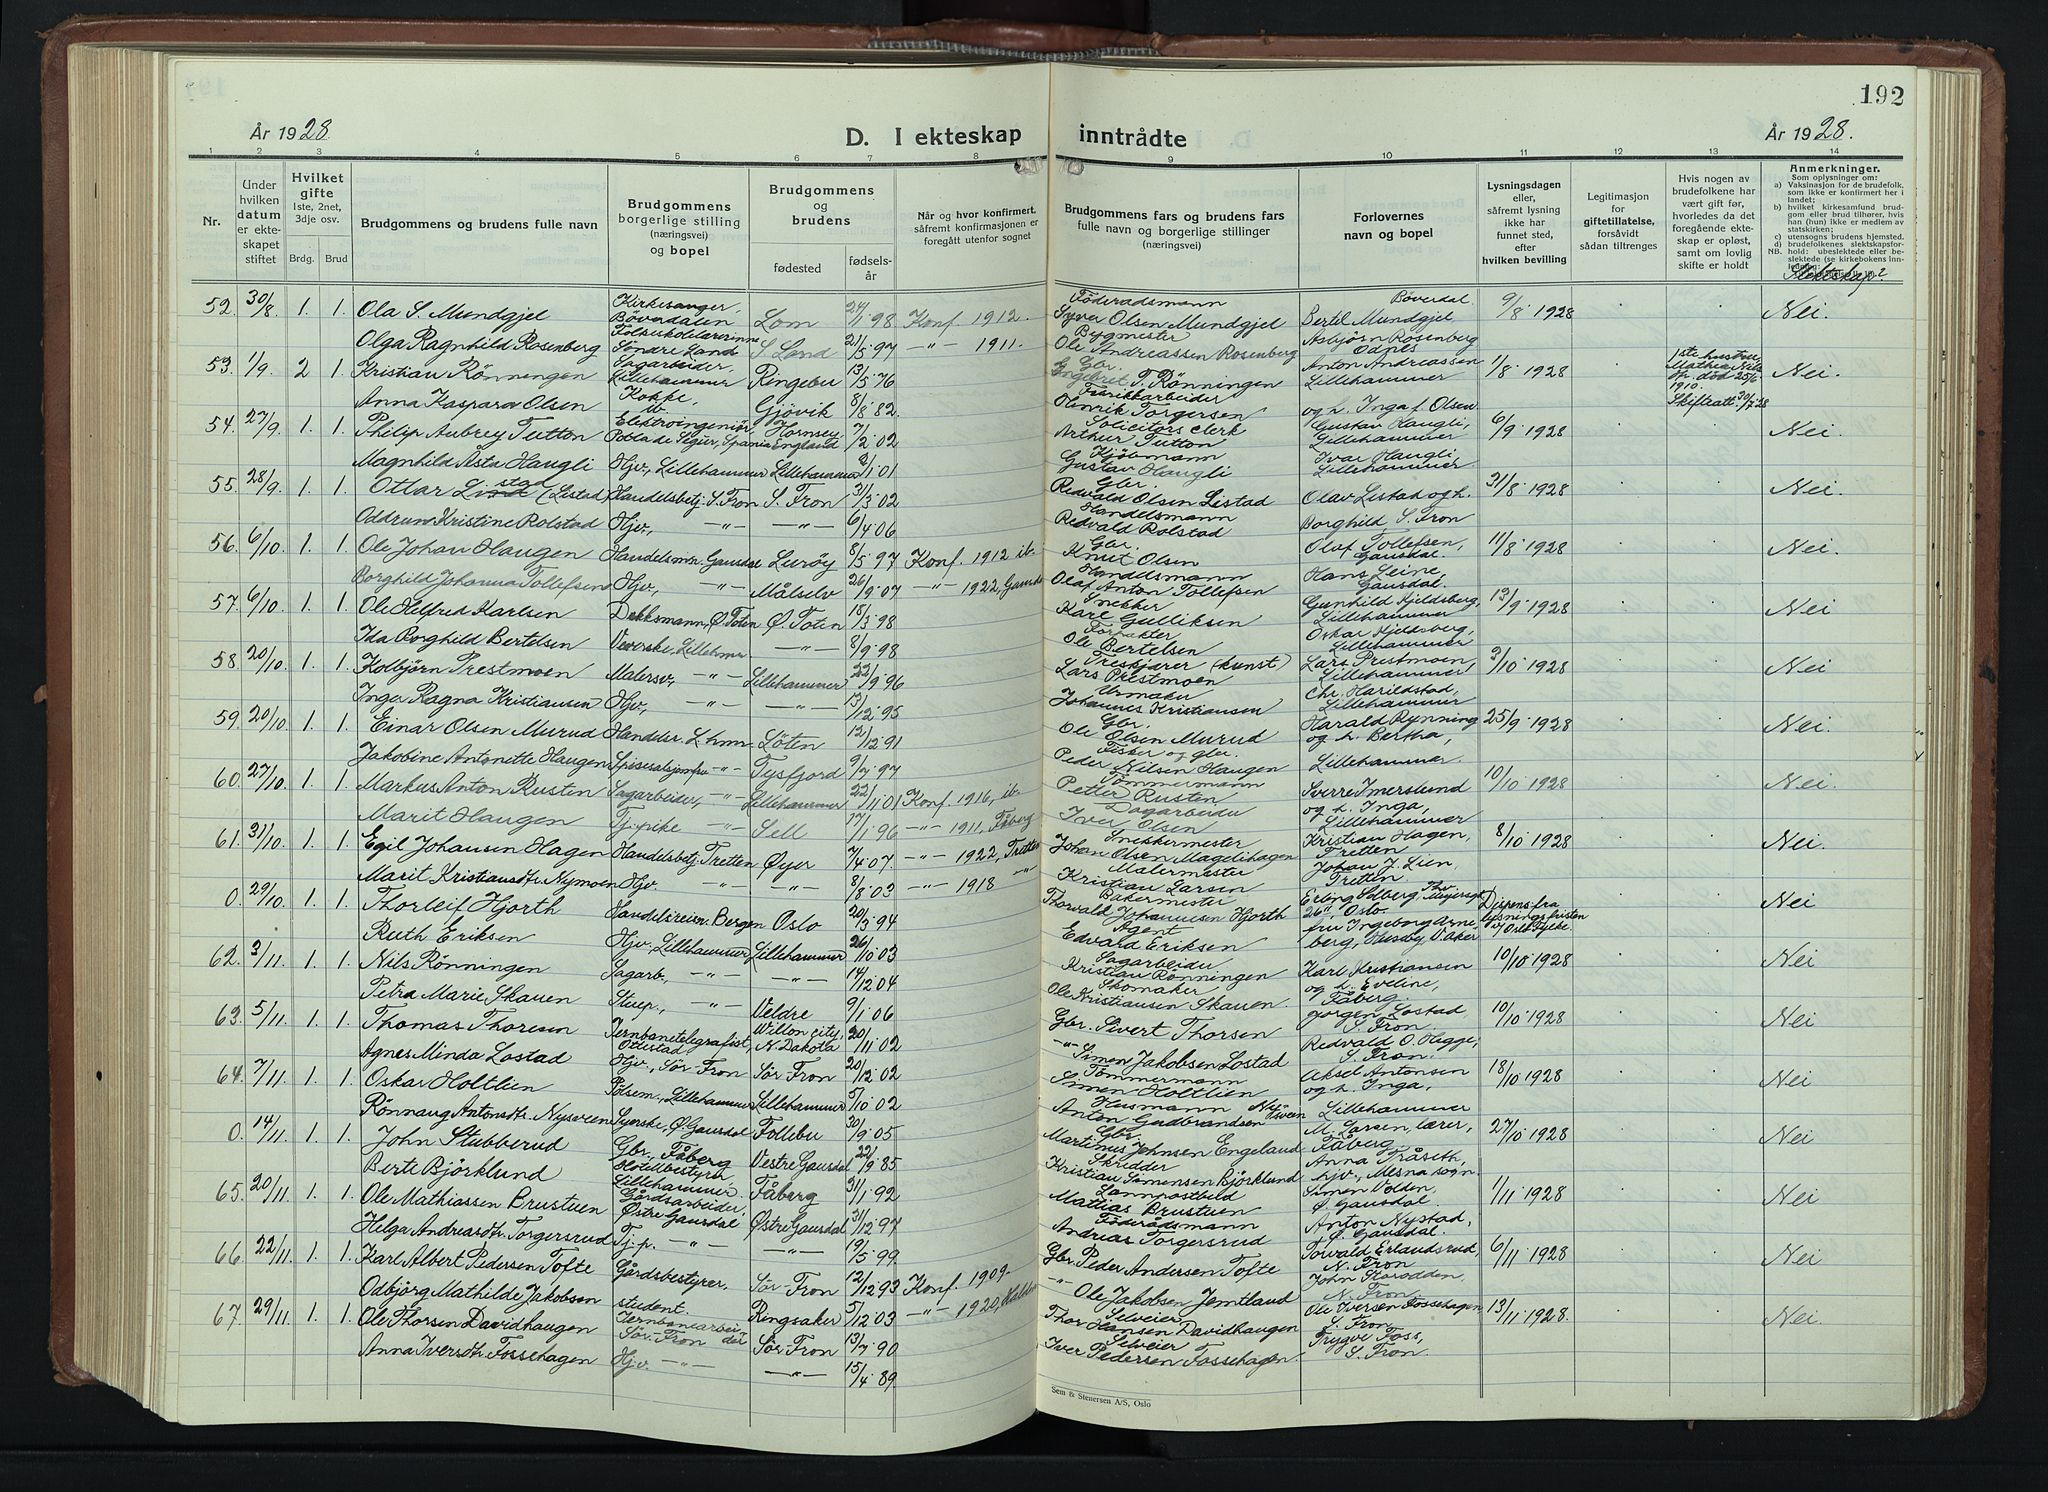 192
År 1928
D. I ekteskap inntrådte
År 1928.
1 2 3 4 5 6 7 8 9 10 11 12 13 14
Nr.
Under hvilken datum er ekteskapet stiftet
Hvilket gifte 1ste, 2net, 3dje osv.
Brdg. Brud
Brudgommens og brudens fulle navn
Brudgommens borgerlige stilling (næringsvei) og bopel
Brudgommens og brudens
fødested fødselsår
Når og hvor konfirmert, såfremt konfirmasjonen er foregått utenfor sognet
Brudgommens fars og brudens fars fulle navn og borgerlige stillinger (næringsvei)
Forlovernes navn og bopel
Lysningsdagen eller, såfremt lysning ikke har funnet sted, efter hvilken bevilling
Legitimasjon for giftetillatelse, forsåvidt sådan tiltrenges
Hvis nogen av brudefolkene har vært gift før, hvorledes da det foregående ekteskap er opløst, samt om lovlig skifte er holdt
Anmerkninger.
Som oplysninger om:
a) Vaksinasjon for de brudefolk, som ikke er konfirmert her i landet;
b) hvilket kirkesamfund brudgom eller brud tilhører, hvis han (hun) ikke er medlem av statskirken;
c) utensogns brudens hjemsted.
d) brudefolkenes slektskapsforhold: ubeslektede eller beslektede (se kirkebokens
Slektskap?
52. 30/8. 1. 1. Ola S. Mundgjel Kirkesanger, Böverdalen Lom 24/1 98. Konf. 1912. Föderadsmann Syver Olsen Mundgjel Bertil Mundgjel Böverdal 9/8 1928 Nei.
Olga Ragnhild Rosenberg Söndre Land S. Land 21/5 97 -"- 1911. Bygmester Ole Andreassen Rosenberg Asbjörn Rosenberg Odnes
53. 1/9. 2 1. Kristian Rönningen Sagarbeider, Lillehammer Ringebu 13/5 76 Gbr. Engebret T. Rönningen Anton Andreassen Lillehammer 1/8 1928 1ste hustru Mathea död 25/6 1910. Skifteatt. 30/7 28 Nei.
Anna Kaspara Olsen Kokke, ib. Gjövik 8/8 82. Fabrikkarbeider Olinrik Torgersen og h. Inga f. Olsen
54. 27/9. 1. 1. Philip Aubrey Tutton Elektroingeniör, Pobla de Segur, Spania Hornsey, England 7/2 02 Solicitors clerk Arthur Tutton Gustav Haugli, Lillehammer 6/9 1928 Nei.
Magnhild Åsta Haugli Hjv., Lillehammer Lillehammer 2/1 01 Kjöbmann Gustav Haugli Ivar Haugli, Lillehammer.
55. 28/9. 1. 1. Ottar Listad (Listad) Handelsbetj. S. Fron S. Fron 31/3 02 Gbr. Redvald Olsen Listad Olav Listad og h. 31/8 1928 Nei.
Oddrun Kristine Rolstad Hjv., -"- -"- 6/4 06 Handelsmann Redvald Rolstad Borghild S. Fron
56. 6/10. 1. 1. Ole Johan Haugen Handelsmn. Gausdal Luröy 8/5 97 Konf. 1912 ib. Gbr. Knut Olsen Olaf Tollefsen, Gausdal. 11/8 1928 Nei.
Borghild Johanna Tollefsen Hjv., -"- Målselv 26/9 07 -"- 1922, Gausdal Handelsmann Olaf Anton Tollefsen Hans Leine, Gausdal.
57. 6/10. 1. 1. Ole Alfred Karlsen Dekksmann, Ø. Toten Ø. Toten 18/3 98 Snekker Karl Gulliksen Gunhild Kjeldsberg, Lillehammer 13/9 1928 Nei
Ida Borghild Bertelsen Veverske, Lillehmr -"- 8/9 98 Forpakter Ole Bertelsen Oskar Kjeldsberg, Lillehammer
58. 20/10. 1. 1. Kolbjörn Prestmoen Malersv., -"- Lillehammer 22/9 96 Treskjærer (kunst) Lars Prestmoen Lars Prestmoen, Lillehammer 3/10 1928 Nei
Inga Ragna Kristiansen Hjv., -"- -"- 13/12 95 Urmaker Johannes Kristiansen Chr. Harildstad, Lillehammer
59. 20/10. 1. 1. Einar Olsen Murud Handelsr. L.hmr. Löten 12/12 91 Gbr. Ole Olsen Murud Harald Rynning og h. Bertha, 25/9 1928 Nei.
Jakobine Antonette Haugen Spisesalsjomfru -"- Tysfjord 9/7 97 Fisker og gbr. Peder Nilsen Haugen Lillehammer.
60. 27/10. 1. 1. Markus Anton Rusten Sagarbeider, -"- Lillehammer 22/11 01 Konf. 1916, ib. Tömmermann Petter Rusten Sverre Imerslund og h. Inga, 10/10 1928 Nei
Marit Haugen Tj.pike -"- Sell 17/1 96 -"- 1911, Fåberg Dagarbeider Iver Olsen Lillehammer
61. 31/10. 1. 1. Egil Johansen Hagen Handelsbetj. Tretten Øyer 7/4 07. -"- 1922, Tretten Snekkermester Johan Olsen Magelihagen Kristian Hagen, Tretten 8/10 1928 Nei
Marit Kristiansdtr. Nymoen Hjv. -"- -"- 8/8 03 -"- 1918 -"- Malermester Kristian Larsen Johan J. Lien, Tretten.
0. 29/10. 1. 1. Thorleif Hjorth Handelsreisn. Bergen Oslo 20/3 94 Bakermester Thorvald Johannesen Hjorth Erling Solberg, Thv. Meyersgt. 26, Oslo. Dispens. fra lysningsfristen Oslo fylke. Nei
Ruth Eriksen Hjv., Lillehammer Lillehammer 26/10 03 Agent Edvard Eriksen fru Ingeborg Arneberg, Husby V. Aker
62. 3/11. 1. 1. Nils Rönningen Sagarb., -"- -"- 14/12 04 Sagarbeider Kristian Rönningen Karl Kristiansen og h. Eveline, Fåberg. 10/10 1928 Nei
Petra Marie Skauen Stuep., -"- Veldre 9/1 06 Skomaker Ole Kristiansen Skauen.
63. 5/11. 1. 1. Thomas Thoresen Jernbanetelegrafist, Ottestad Willon city, N. Dakota 20/11 02 Gbr. Sivert Thorsen Jørgen Lostad S. Fron. 10/10 1928 Nei
Agnes Minda Lostad Hjv., Sör-Fron Sör-Fron 20/12 02 -"- Simen Jakobsen Lostad Redvald O. Higge, S. Fron.
64. 7/11. 1. 1. Oskar Holtlien Pölsem., Lillehammer Lillehammer 5/10 02 Tömmermann Simen Holtlien Aksel Antonsen og h. Inga, 18/10 1928 Nei
Rönnaug Antonsdtr. Nysveen Syerske, Ø. Gausdal Follebu 30/9 05 Husmann Anton Gudbrandsen Nysveen Lillehammer
0. 14/11. 1. 1. John Stubberud Gbr., Fåberg Vestre Gausdal 22/9 85 Gbr. Martinus Johnsen Engeland M. Larsen, lærer, Fåberg. 27/10 1928 Nei
Berte Björklund Hotellbestyrer, Lillehammer. Fåberg 31/1 92 Skredder Kristian Simensen Björklund Anna Tråseth, hjv., Mesna sogn.
65. 20/11. 1. 1. Ole Mathiassen Brustuen Gårdsarbeider, Østre Gausdal Østre Gausdal 31/12 97 Lannpostbud Mathias Brustuen Simen Volden, Ø. Gausdal 1/11 1928 Nei
Helga Andreasdtr. Torgersrud Tj.p. -"- -"- 19/5 99. Föderådsmann Andreas Torgersrud Anton Nystad, Ø. Gausdal.
66. 22/11. 1. 1. Karl Albert Pedersen Tofte Gårdsbestyrer, Sör-Fron 12/12 93 Konf. 1909. Gbr. Peder Andersen Tofte Torvald Erlandsrud, N. Fron 6/11 1928 Nei
Odbjörg Mathilde Jakobsen student. Ringsaker 5/12 03 -"- 1920, Halden -"- Ole Jakobsen Jemtland John Storodden, N. Fron.
67. 29/11. 1. 1. Ole Thorsen Davidhaugen Jernbanearbeider Sör-Fron Sör-Fron 13/7 90 Selveier Thor Hansen Davidhaugen Ole Iversen Fossehagen S. Fron. 13/11 1928. Nei.
Anna Iversdtr. Fossehagen Hjv. -"- -"- 15/4 89 Selveier Iver Pedersen Fossehagen. Trygve Foss, S. Fron.
Sem & Stenersen A/S, Oslo